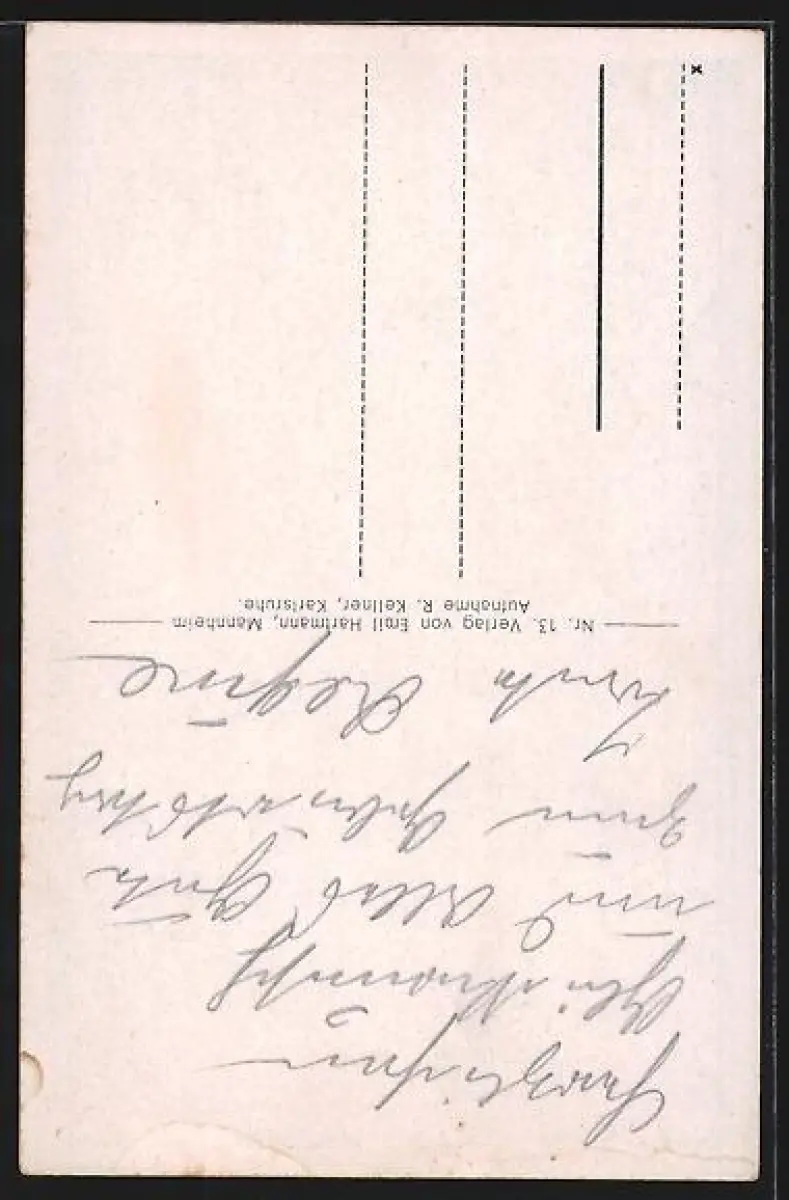 Herzlichen
Glückwunsch
und Alles Gute
zum Geburtstag
Tante Regine
Nr. 13. Verlag von Emil Hartmann, Mannheim
Aufnahme R. Kellner, Karlsruhe.